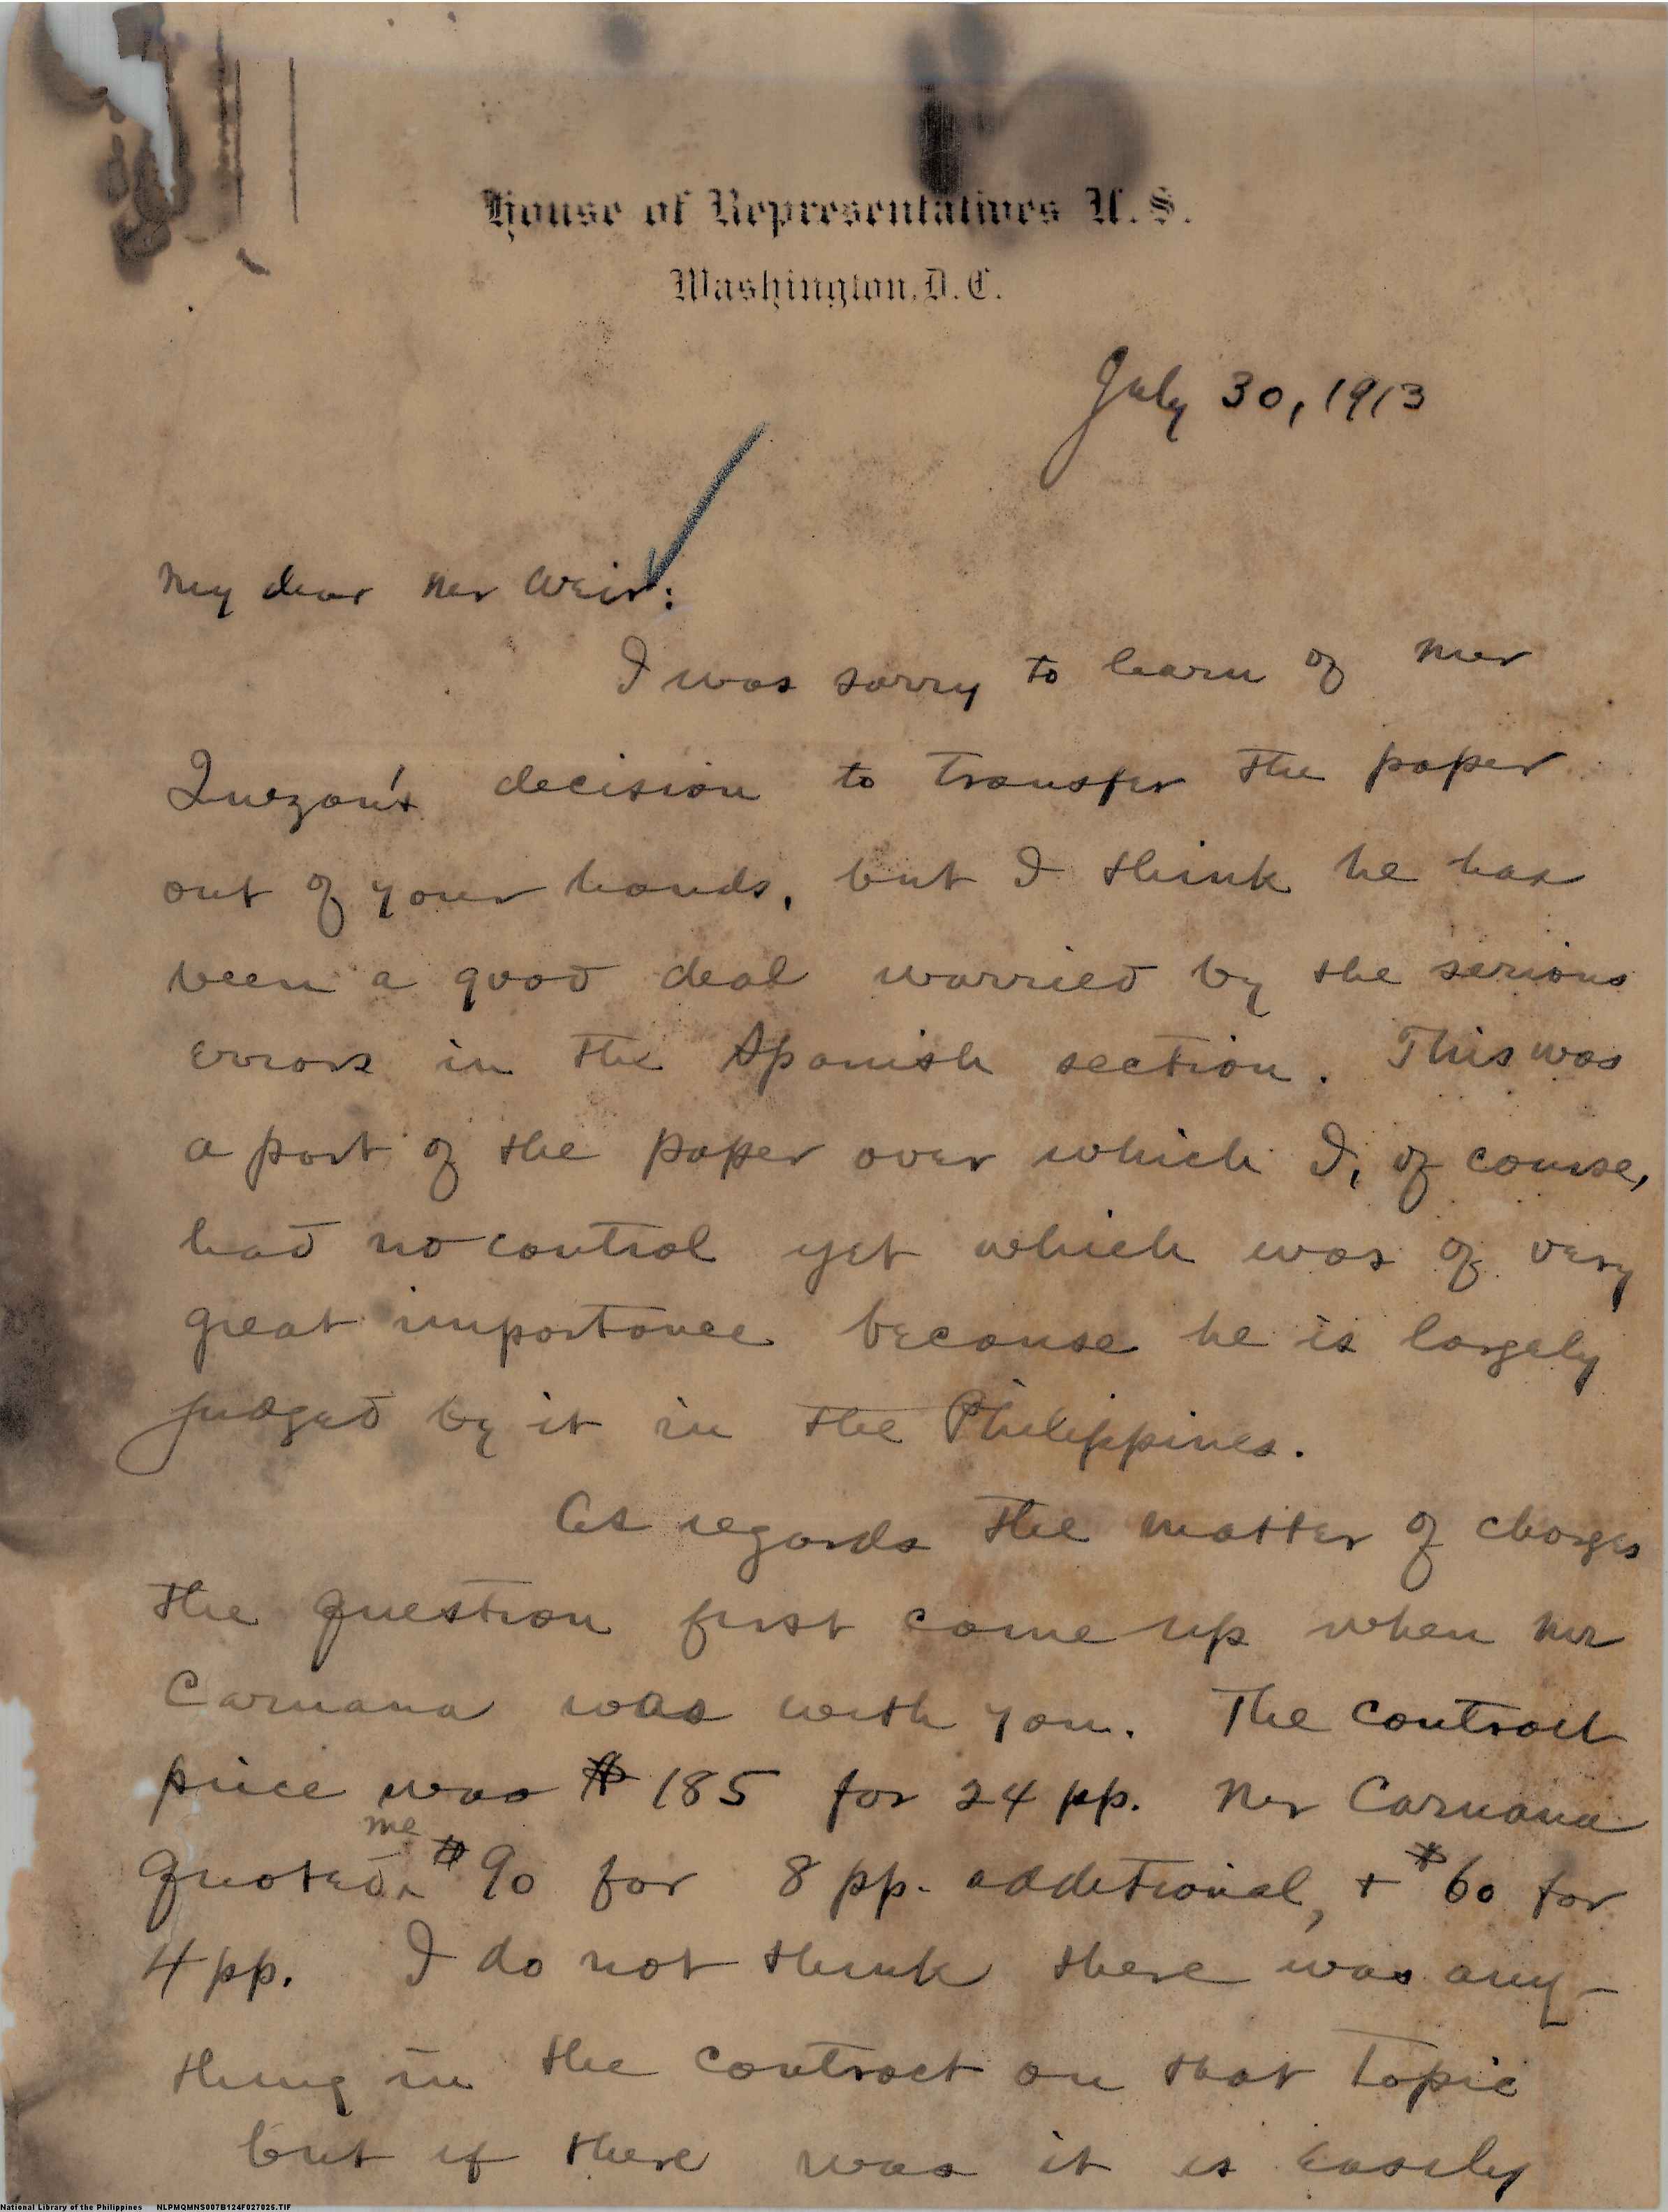 House of Representatives U.S.
Washington, D.C.
July 30, 1913
My dear Mr Weir:
I was sorry to learn of Mr
Quezon's decision to transfer the paper
out of your hands, but I think he has
been a good deal worried by the serious
errors in the Spanish section. This was
a part of the paper over which I, of course,
had no control yet which was of very
great importance because he is largely
judged by it in the Philippines.
As regards the matter of charges
the question first came up when Mr
Caruana was with you. The contract
price was $185 for 24 pp. Mr Caruana
quoted me $90 for 8 pp. additional, + $60 for
4 pp. I do not think there was any-
thing in the contract on that topic
but if there was it is easily
National Library of the Philippines NLPMQMNS007B124F027026.TIF